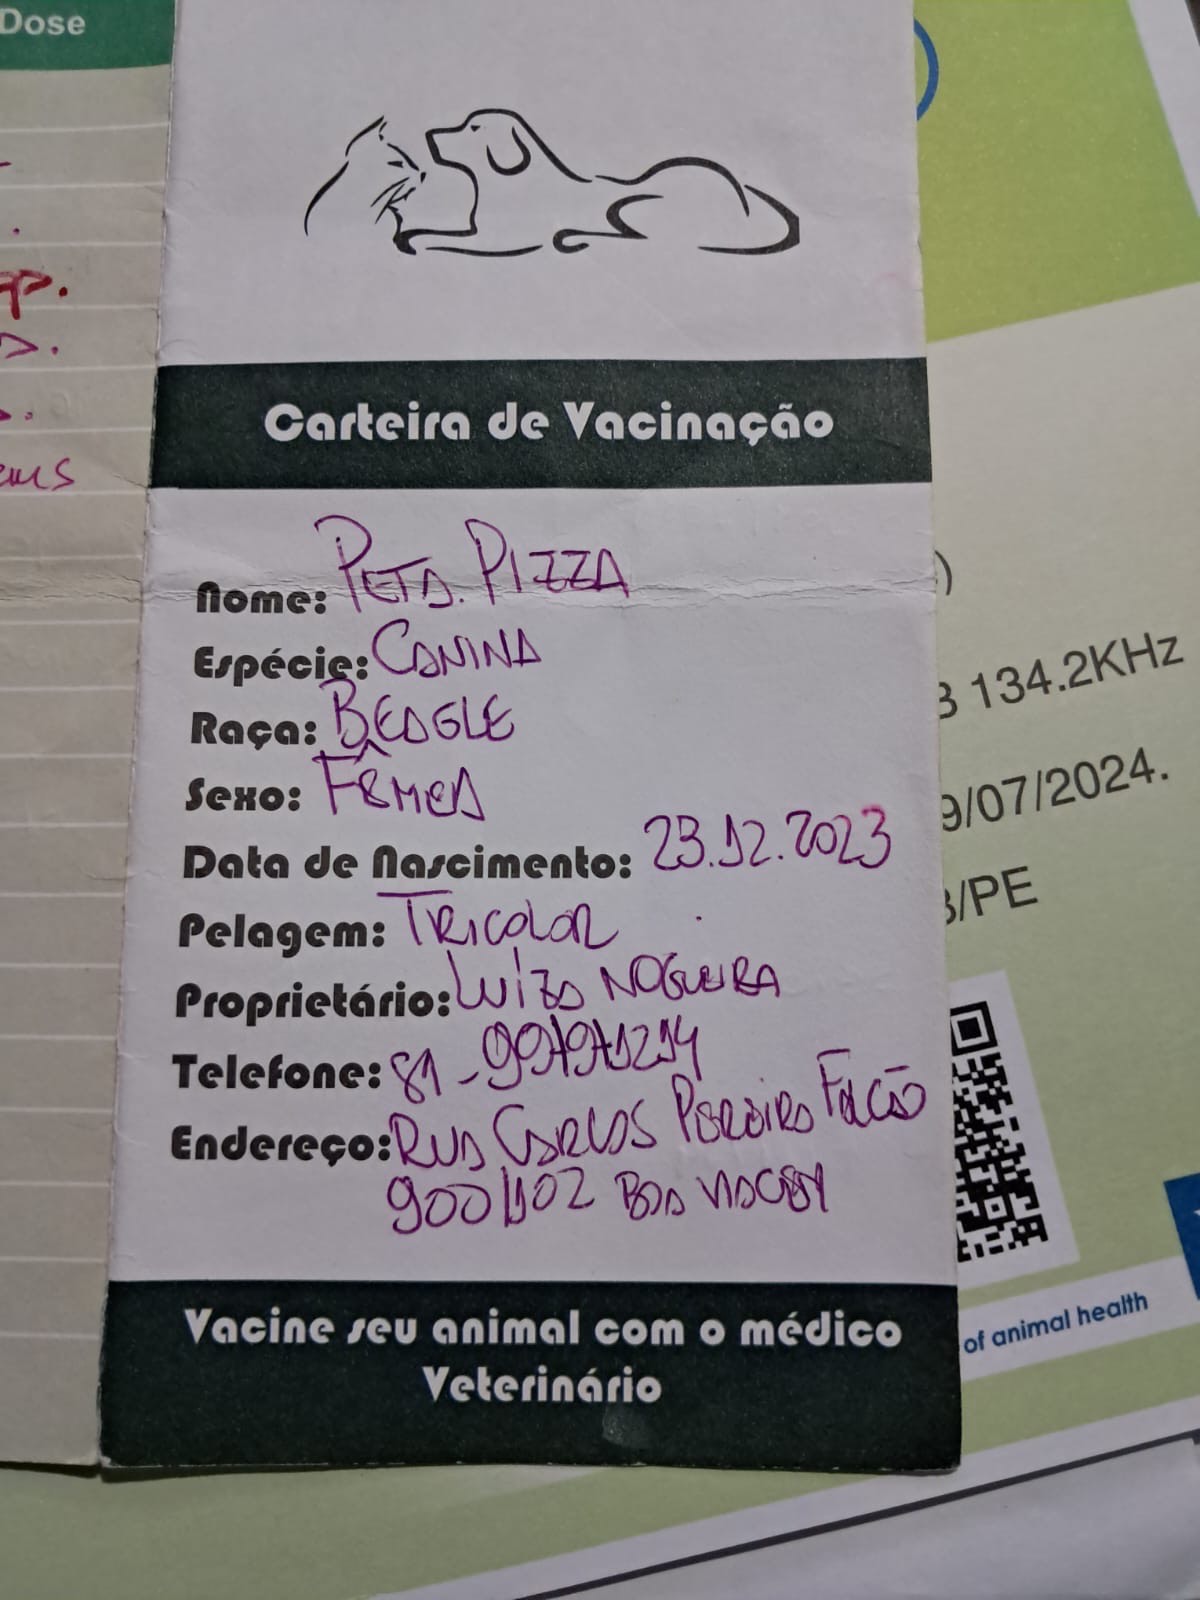 Dose
Carteira de Vacinação
Nome: PETA. PIZZA
Espécie: CANINA
Raça: BEAGLE
Sexo: FÊMEA
Data de Nascimento: 23.12.2023
Pelagem: TRICOLOR
Proprietário: LUÍZA NOGUEIRA
Telefone: 81-997971214
Endereço: RUA CARLOS PEREIRA FALCÃO
900/102 BOA VIAGEM
Vacine seu animal com o médico
Veterinário
134.2KHz
9/07/2024.
/PE
of animal health